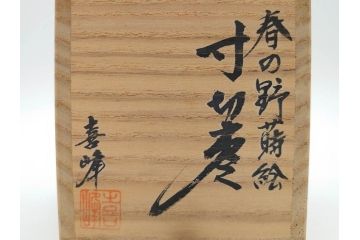 春の野蒔絵
寸切棗
喜峰